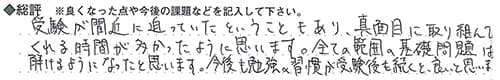 ◆総評 ※良くなった点や今後の課題などを記入して下さい。
受験が間近に迫っていたということもあり、真面目に取り組んで
くれる時間が多かったように思います。全ての範囲の基礎問題は
解けるようになったと思います。今後も勉強の習慣が受験後も続くと、良いと思いま